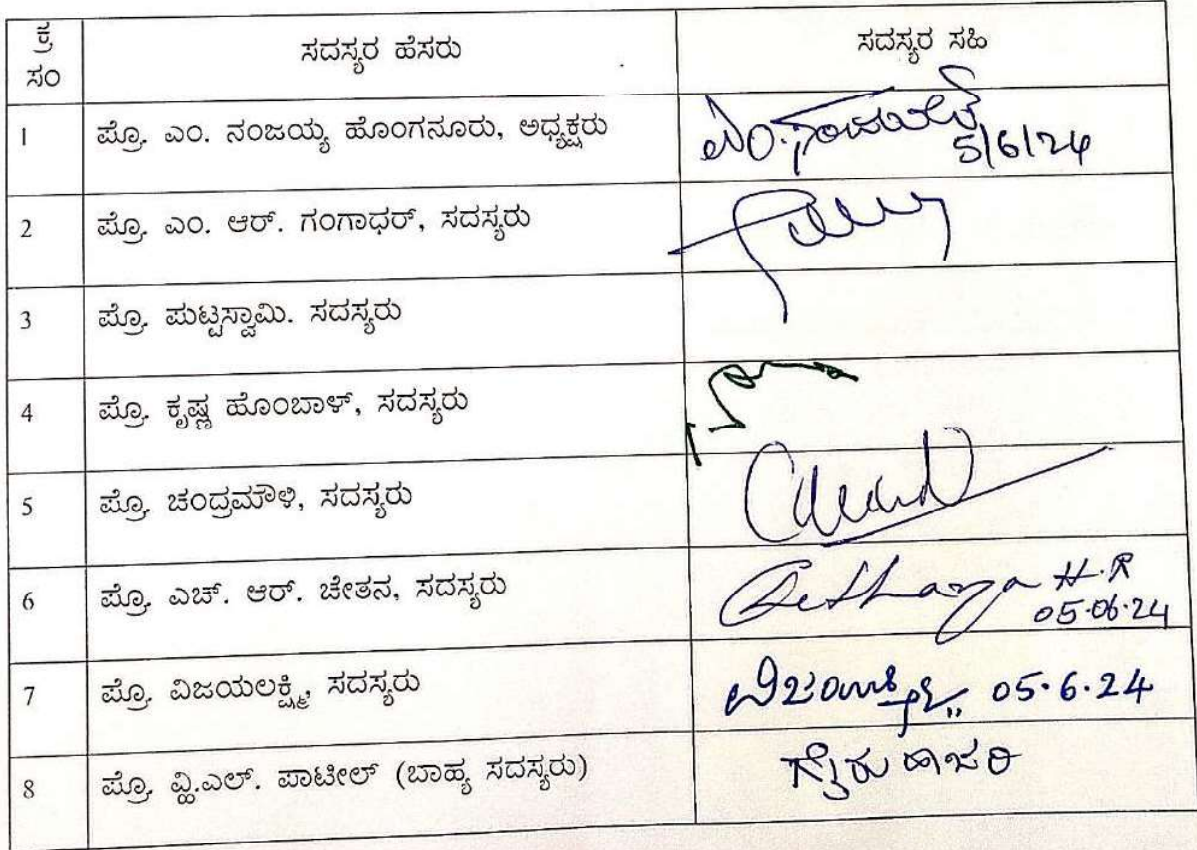 ಕ್ರ ಸಂ ಸದಸ್ಯರ ಹೆಸರು ಸದಸ್ಯರ ಸಹಿ
1 ಪ್ರೊ. ಎಂ. ನಂಜಯ್ಯ ಹೊಂಗನೂರು, ಅಧ್ಯಕ್ಷರು 5/6/24
2 ಪ್ರೊ. ಎಂ. ಆರ್. ಗಂಗಾಧರ್, ಸದಸ್ಯರು
3 ಪ್ರೊ. ಪುಟ್ಟಸ್ವಾಮಿ. ಸದಸ್ಯರು
4 ಪ್ರೊ. ಕೃಷ್ಣ ಹೊಂಬಾಳ್, ಸದಸ್ಯರು
5 ಪ್ರೊ. ಚಂದ್ರಮೌಳಿ, ಸದಸ್ಯರು
6 ಪ್ರೊ. ಎಚ್. ಆರ್. ಚೇತನ, ಸದಸ್ಯರು H.R
05.06.24
7 ಪ್ರೊ. ವಿಜಯಲಕ್ಷ್ಮಿ, ಸದಸ್ಯರು 05.6.24
8 ಪ್ರೊ. ವ್ಹಿ.ಎಲ್. ಪಾಟೀಲ್ (ಬಾಹ್ಯ ಸದಸ್ಯರು) ಗೈರು ಹಾಜರಿ